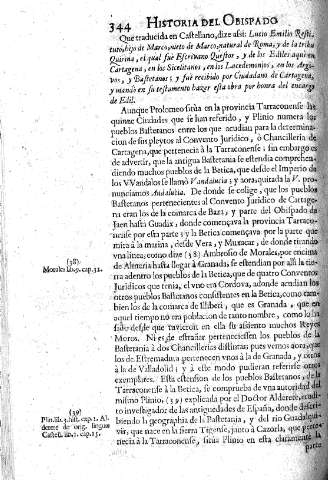 344 HISTORIA DEL OBISPADO
Que traducida en Castellano, dize assi: Lucio Emilio Resti
tuto, hijo de Marco, nieto de Marco, natural de Roma, y de la tribu
Quirina, el qual fue Escrivano Questor, y de los Ediles aqui en
Cartagena, en los Sicelitanos, en los Lacedemonios, en los Argi-
vos, y Bastetanos; y fue recibido por Ciudadano de Cartagena,
y mandò en su testamento hazer esta obra por honra del encargo
de Edil.
Aunque Ptolomeo sitùa en la provincia Tarraconense
quinze Ciudades que se han referido, y Plinio numera los
pueblos Bastetanos entre los que acudian para la determina-
cion de sus pleytos al Convento Juridico, ò Chancilleria de
Cartagena, que pertenecia à la Tarraconense; sin embargo es
de advertir, que la antigua Bastetania se estendia comprehen-
diendo muchos pueblos de la Betica, que desde el Imperio de
los VVandalos se llamò Vandalucia; y aora, quitada la V. pro-
nunciamos Andalucia. De donde se colige, que los pueblos
Bastetanos pertenecientes al Convento Juridico de Cartage-
na eran los de la comarca de Baza, y parte del Obispado de
Jaen hasta Guadix, donde começava la provincia Tarraco-
nense por esta parte; y la Betica començava por la parte que
mira à la marina, desde Vera, y Muxacar, de donde tirando
vna linea, como dize (38) Ambrosio de Morales, por encima
de Almeria hasta llegar à Granada, se estendian por allì la tie-
rra adentro los pueblos de la Betica, que de quatro Conventos
Juridicos que tenia, el vno era Cordova, adonde acudian los
otros pueblos Bastetanos consistentes en la Betica, como tam-
bien los de la comarca de Iliberi, que es Granada, que en
aquel tiempo no era poblacion de tanto nombre, como lo ha
sido desde que tuvieron en ella su assiento muchos Reyes
Moros. Ni es de estrañar perteneciessen los pueblos de la
Bastetania à dos Chancillerias distintas pues vemos aora, que
los de Estremadura pertenecen vnos à la de Granada, y otros
à la de Valladolid; y à este modo pudieran referirse otros
exemplares. Esta estension de los pueblos Bastetanos, de la
Tarraconense à la Betica, se comprueba de vna autoridad del
mismo Plinio, (39) explicada por el Doctor Alderete, erudi-
to investigador de las antiguedades de España, donde descri-
biendo la geographia de la Bastetania, y del rio Guadalqui-
vir, que nace en la sierra Tigense, junto à Cazorla, que perte-
necia à la Tarraconense, sitùa Plinio en esta claramente la
parte
(38)
Morales lib. 9. cap. 32.
(39)
Plin. lib. 3. hist. cap. 1. Al-
derete de orig. lingua
Castell. lib. 1. cap. 15.